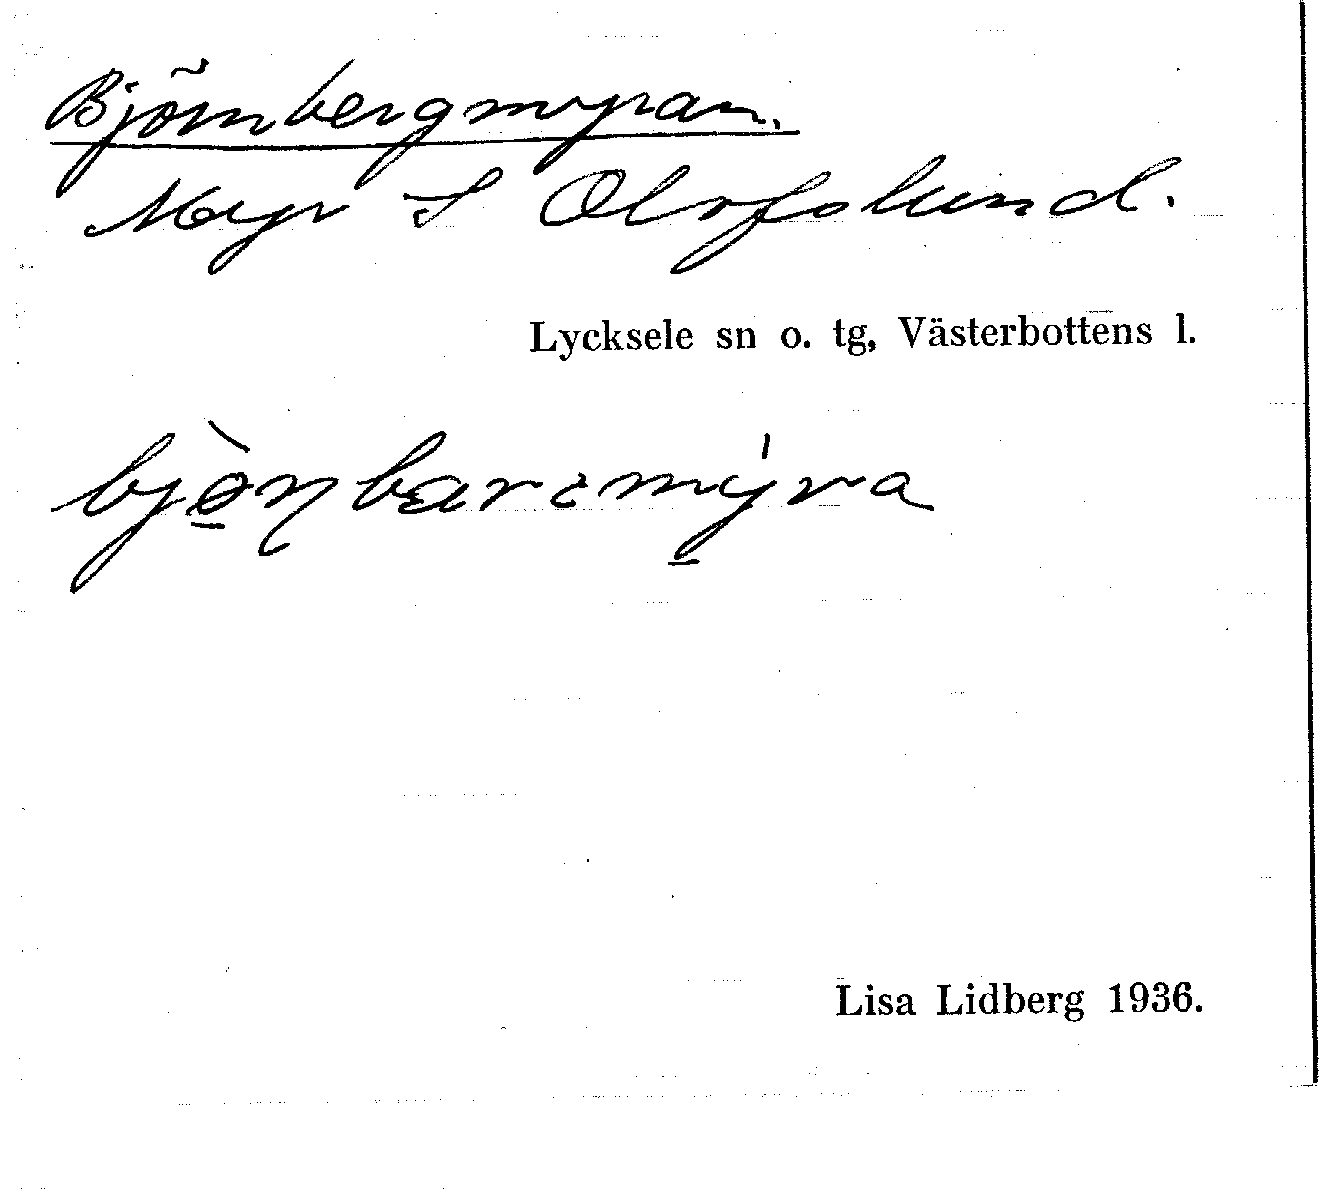 Björnbergmyran.
Myr S Olofslund.
Lycksele sn o. tg, Västerbottens l.
Lisa Lidberg 1936.